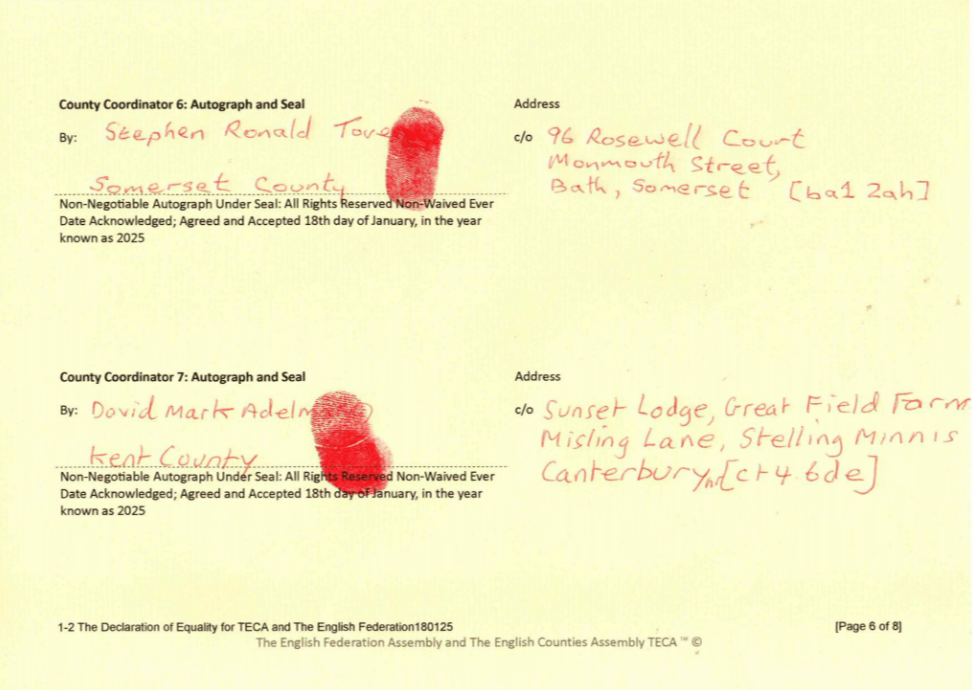 County Coordinator 6: Autograph and Seal
Address
By: Stephen Ronald
c/o 96 Rosewell Court
Monmouth Street,
Somerset County
Bath, Somerset [ba1 2ah]
Non-Negotiable Autograph Under Seal: All Rights Reserved Non-Waived Ever
Date Acknowledged; Agreed and Accepted 18th day of January, in the year
known as 2025
County Coordinator 7: Autograph and Seal
Address
By: David Mark
c/o Sunset Lodge, Great Field Farm
Misling Lane, Stelling Minnis
Kent County
Canterbury, [ct4 6de]
Non-Negotiable Autograph Under Seal: All Rights Reserved Non-Waived Ever
Date Acknowledged; Agreed and Accepted 18th day of January, in the year
known as 2025
1-2 The Declaration of Equality for TECA and The English Federation180125
[Page 6 of 8]
The English Federation Assembly and The English Counties Assembly TECA ™ ©